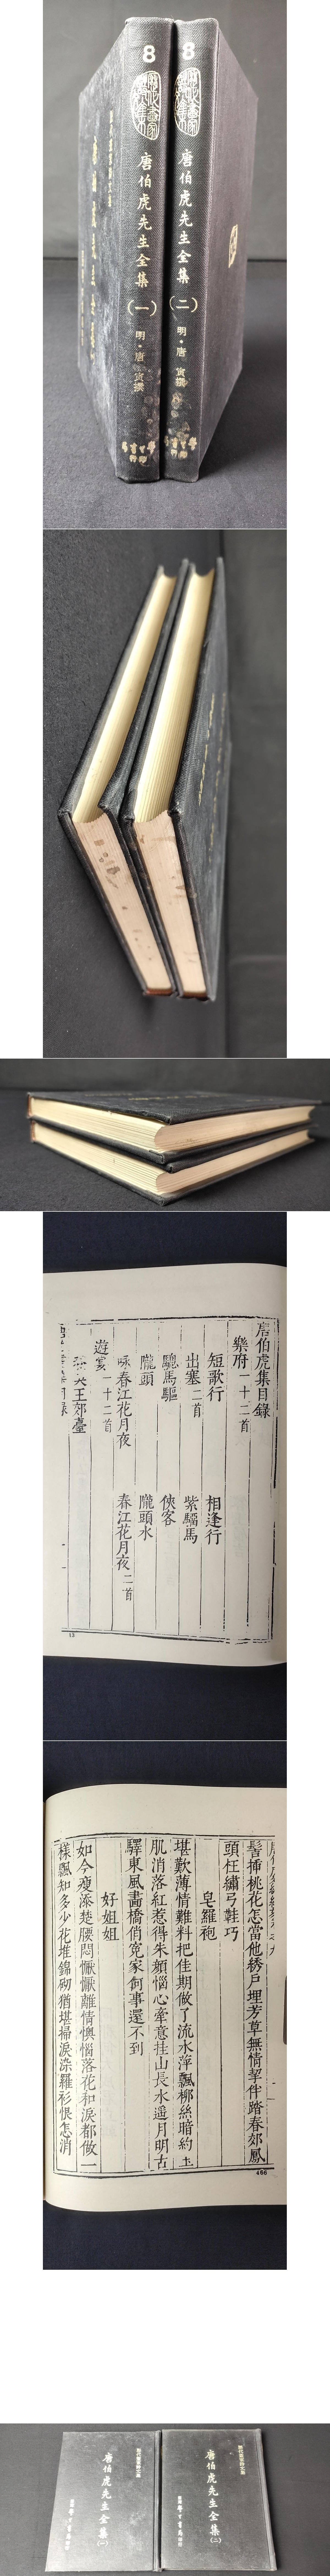 8
唐伯虎先生全集
(一)
明·唐寅撰
8
唐伯虎先生全集
(二)
明·唐寅撰
唐伯虎集目錄
樂府一十二首
短歌行
相逢行
出塞二首
紫騮馬
驄馬驅
俠客
隴頭
隴頭水
詠春江花月夜
春江花月夜二首
遊宴一十二首
王郊臺
13
髻揷桃花怎當他綉戶埋芳草無情挈伴踏春郊鳳
頭枉繡弓鞋巧
皂羅袍
堪歎薄情難料把佳期做了流水萍飄柳絲暗約玉
肌消落紅惹得朱顏惱心牽意挂山長水遥月明古
驛東風畵橋俏寃家何事還不到
好姐姐
如今瘦添楚腰悶懨懨離情懊惱落花和淚都做一
樣飄知多少花堆錦砌猶堪掃淚染羅衫恨怎消
466
歷代畫家詩文集
唐伯虎先生全集
(一)
學生書局
歷代畫家詩文集
唐伯虎先生全集
(二)
學生書局